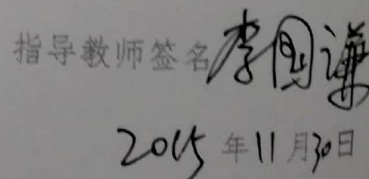 指导教师签名 李国谦
2015 年 11 月 30 日